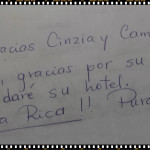 acias Cinzia y Cam
gracias por su
daré su hotel.
a Rica !! Pura